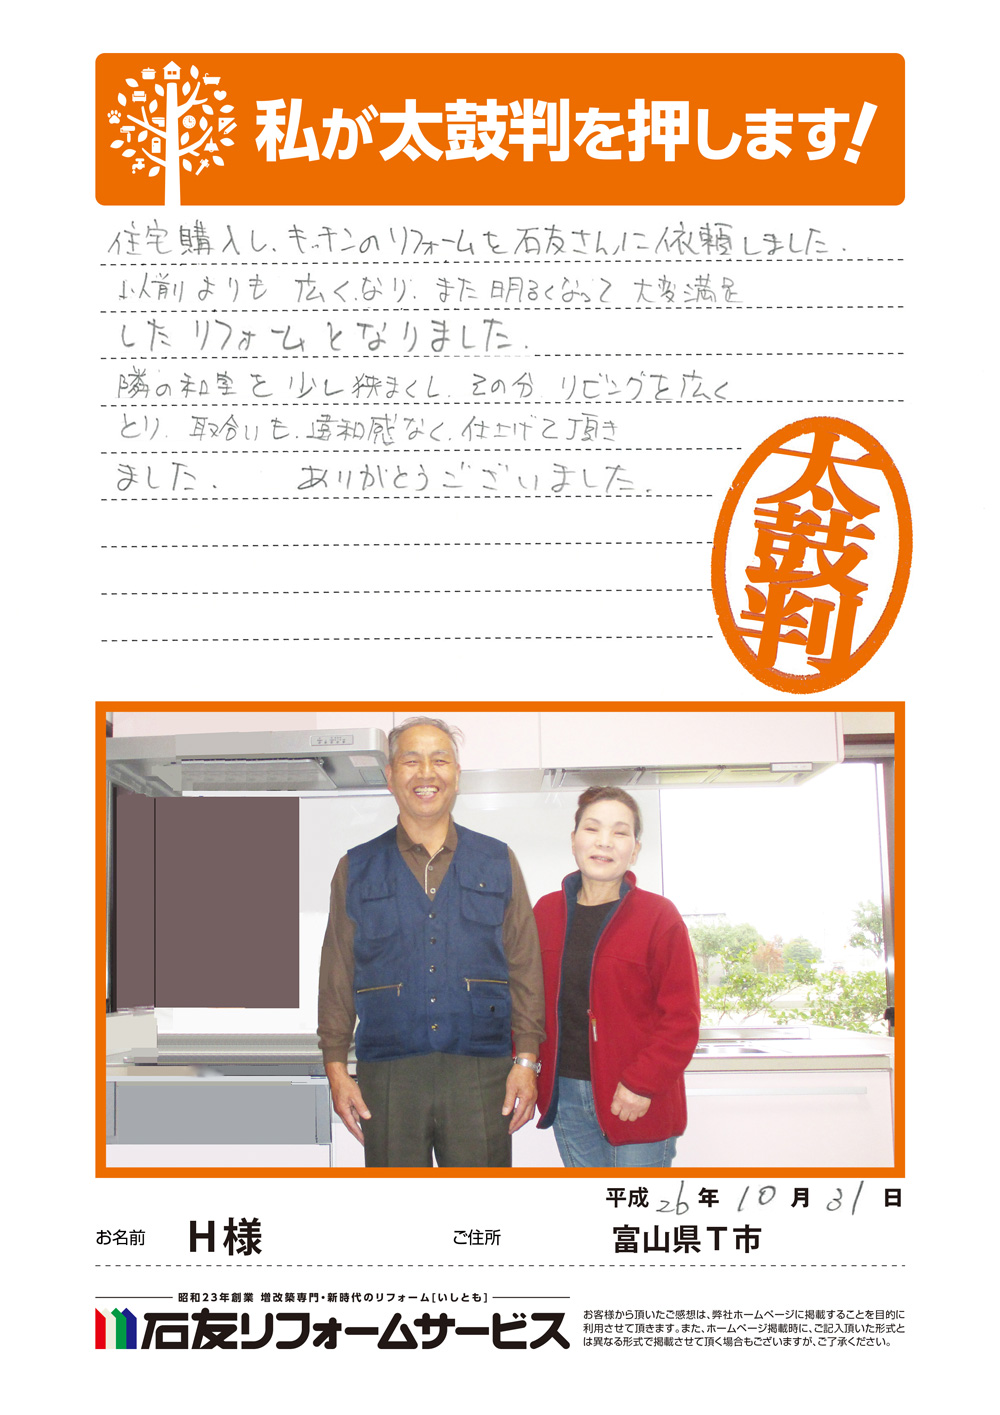 私が太鼓判を押します!
住宅購入し、キッチンのリフォームを石友さんに依頼しました.
以前よりも 広くなり、また明るくなって 大変満足
したリフォームとなりました.
隣の和室を少し狭まくし、その分、リビングを広く
とり、取合いも、違和感なく、仕上げて頂き
ました. ありがとうございました.
太鼓判
平成26年10月31日
お名前 H様 ご住所 富山県T市
昭和23年創業 増改築専門・新時代のリフォーム[いしとも]
石友リフォームサービス
お客様から頂いたご感想は、弊社ホームページに掲載することを目的に
利用させて頂きます。また、ホームページ掲載時に、ご記入頂いた形式と
は異なる形式で掲載させて頂く場合もございますが、ご了承ください。